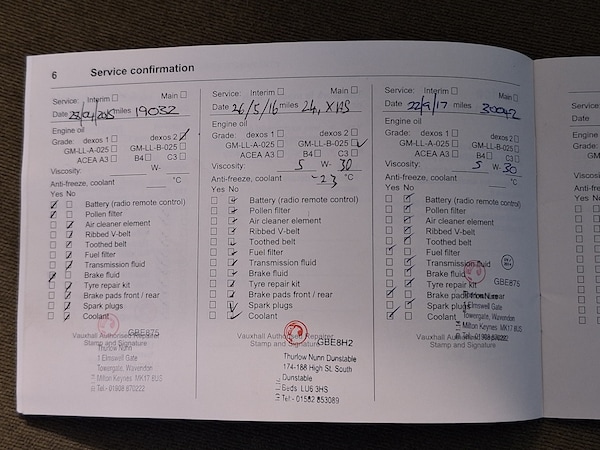 6 Service confirmation
Service: Interim Main
Date miles 19032
Engine oil
Grade: dexos 1 dexos 2
GM-LL-A-025 GM-LL-B-025
ACEA A3 B4 C3
Viscosity: W-
Anti-freeze, coolant °C
Yes No
Battery (radio remote control)
Pollen filter
Air cleaner element
Ribbed V-belt
Toothed belt
Fuel filter
Transmission fluid
Brake fluid
Tyre repair kit
Brake pads front / rear
Spark plugs
Coolant
GBE875
Vauxhall Authorised Repairer
Stamp and Signature
Thurlow Nunn
1 Elmswell Gate
Towergate, Wavendon
Milton Keynes MK17 8US
Tel - 01908 870222
Service: Interim Main
Date 26/5/16 miles
Engine oil
Grade: dexos 1 dexos 2
GM-LL-A-025 GM-LL-B-025
ACEA A3 B4 C3
Viscosity: 5 W- 30
Anti-freeze, coolant -23 °C
Yes No
Battery (radio remote control)
Pollen filter
Air cleaner element
Ribbed V-belt
Toothed belt
Fuel filter
Transmission fluid
Brake fluid
Tyre repair kit
Brake pads front / rear
Spark plugs
Coolant
GBE8H2
Vauxhall Authorised Repairer
Stamp and Signature
Thurlow Nunn Dunstable
174-188 High St. South
Dunstable
Beds LU6 3HS
Tel - 01582 853089
Service: Interim Main
Date 22/9/17 miles 30042
Engine oil
Grade: dexos 1 dexos 2
GM-LL-A-025 GM-LL-B-025
ACEA A3 B4 C3
Viscosity: 5 W- 30
Anti-freeze, coolant °C
Yes No
Battery (radio remote control)
Pollen filter
Air cleaner element
Ribbed V-belt
Toothed belt
Fuel filter
Transmission fluid
Brake fluid
Tyre repair kit GBE875
Brake pads front / rear
Thurlow Nunn
Spark plugs
Coolant
Gate
Towergate, Wavendon
Milton Keynes MK17 8US
Vauxhall
Stamp and Signature
Service:
Date
Engine oil
Grade:
Yes No